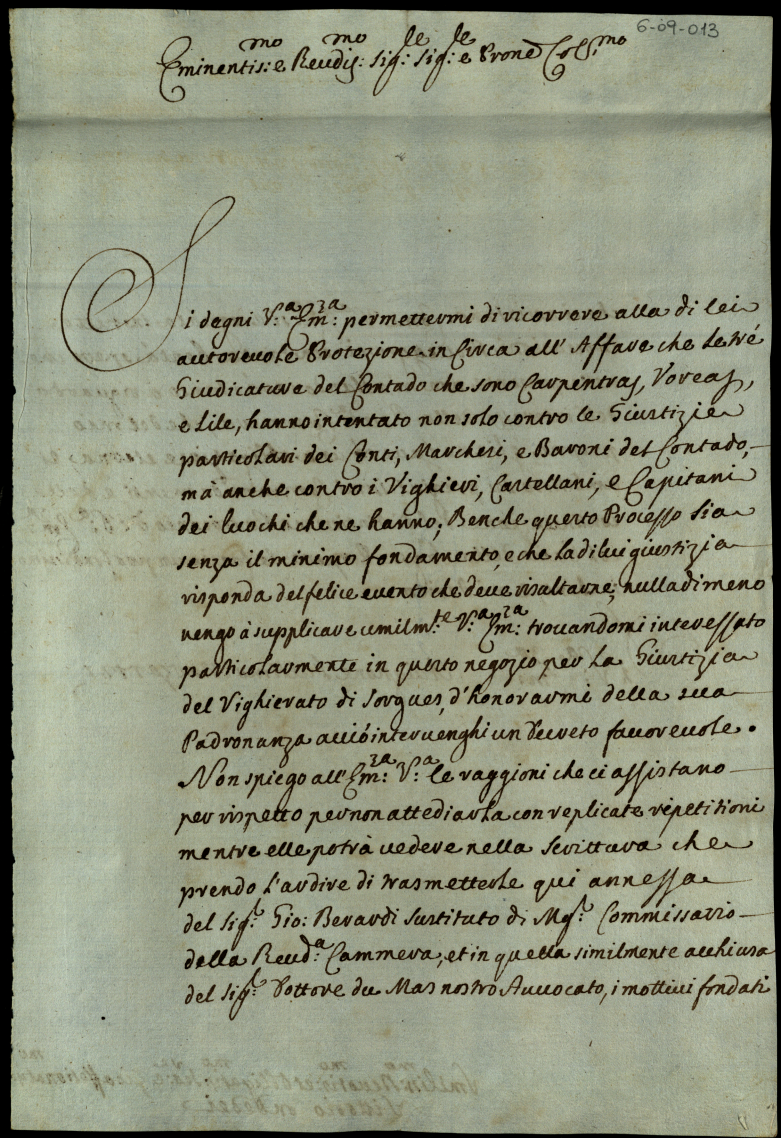 6-09-013
Eminentis:mo e Reudis:mo Sig:le Sig:le e Prone Col:mo
Si degni V:a Em:za permettermi di ricorrere alla di lei
autorevole Protezione in Circa all' Affare che le tré
Giudicature del Contado che sono Carpentras, Voreas,
e Lile, hanno intentato non solo contro le Giustizie
particolari dei Conti, Marchesi, e Baroni del Contado,
mà anche contro i Vighieri, Castellani, e Capitani
dei luochi che ne hanno; Benche questo Processo sia
senza il minimo fondamento, e che la di lui giustizia
risponda del felice evento che deve risultarne; nulladimeno
vengo à supplicare umilm:te V:a Em:za trovandomi interessato
particolarmente in questo negozio per la Giustizia
del Vighierato di Sorgues, d'honorarmi della sua
Padronanza acciò intervenghi un Decreto favorevole.
Non spiego all' Em:za V:a le raggioni che ci assistano
per rispetto per non attediarla con replicate repetitioni
mentre elle potrà vedere nella Scrittura che
prendo l'ardire di trasmetterle qui annessa
del Sig:r Gio: Berardi Sustituto di Mg:r Commissario
della Reud:a Cammera, et in quella similmente acchiusa
del Sig:r Dottore du Mas nostro Avvocato, i mottivi fondati